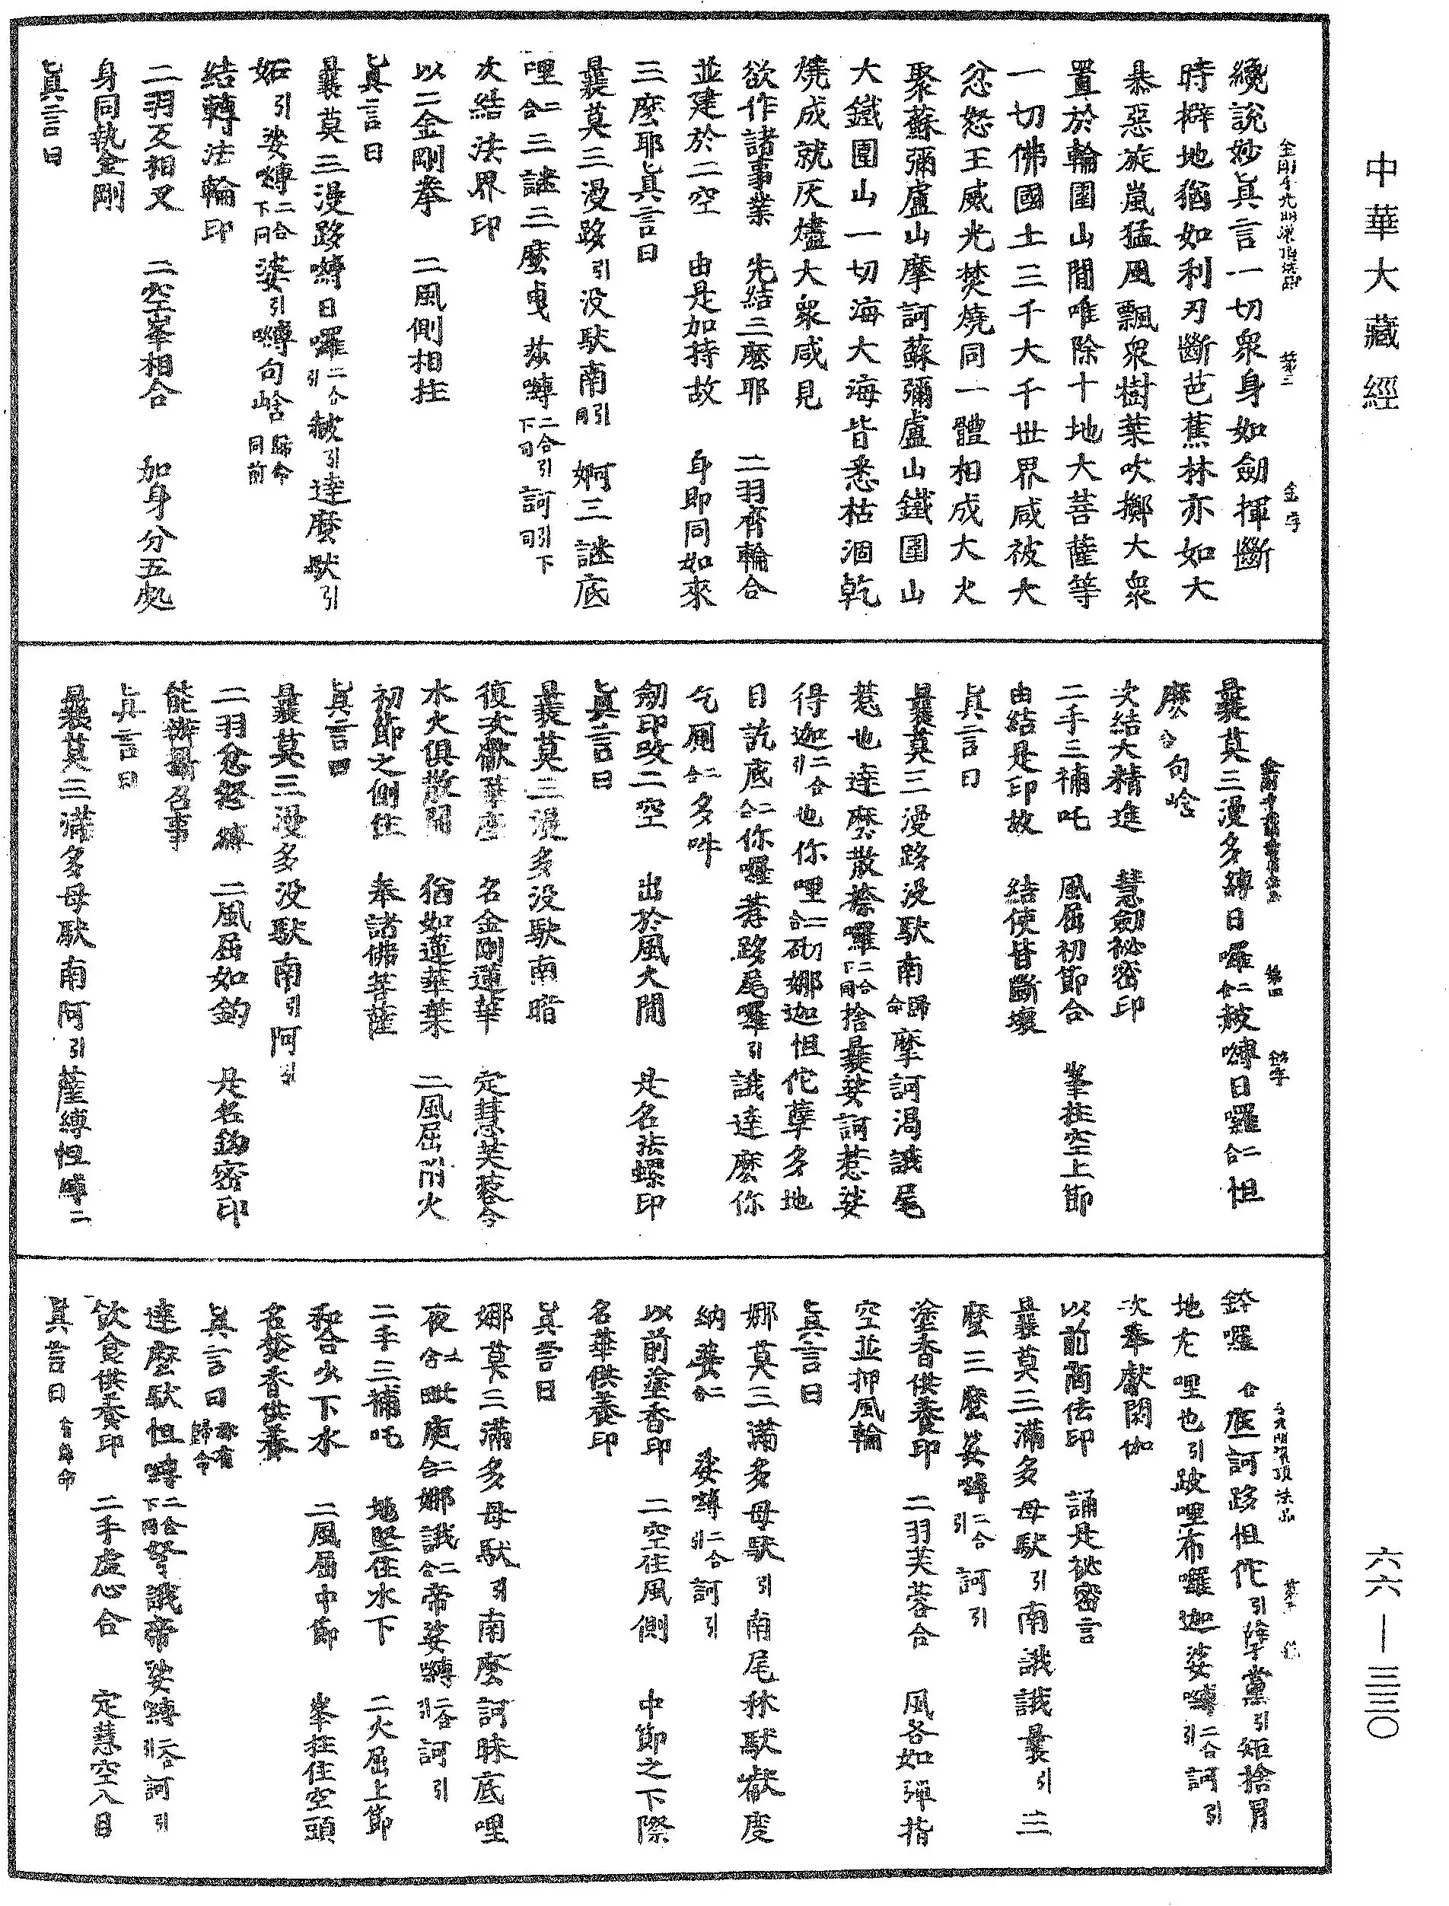 中華大藏經
六六—三三〇
金剛手光明灌頂經品　第三　金字
纔說妙眞言一切衆身如劒揮斷
時擗地猶如利刃斷芭蕉林亦如大
暴惡旋嵐猛風飄衆樹葉吹擲大衆
置於輪圍山閒唯除十地大菩薩等
一切佛國土三千大千世界咸被大
忿怒王威光焚燒同一體相成大火
聚蘇彌盧山摩訶蘇彌盧山鐵圍山
大鐵圍山一切海大海皆悉枯涸乾
燒成就灰燼大衆咸見
欲作諸事業　先結三麼耶　二羽齊輪合
並建於二空　由是加持故　身即同如來
三麼耶眞言曰
曩莫三漫跢引没馱南引　婀三謎底
哩二合三謎三麼曳　莎嚩二合引訶引
次結法界印
以二金剛拳　二風側相拄
眞言曰
曩莫三漫跢嚩日囉二合引赧引達麼馱引
結轉法輪印
二羽反相叉　二空峯相合　加身分五處
身同執金剛
眞言曰
第四
曩莫三漫多嚩日囉二合赧嚩日囉二合怛
麼二合句唅
次結大精進　慧劒祕密印
二手三補吒　風屈初節合　峯拄空上節
由結是印故　結使皆斷壞
眞言曰
曩莫三漫跢没馱南歸命摩訶渴誐尾
惹也達麼散捺囉二合捨曩娑訶惹娑
得迦二合引也你哩二合砌娜迦怛佗孽多地
目訖底二合你囉惹跢尾囉引誐達麼你
乞灑二合多吽
劒印改二空　出於風火閒　是名法螺印
眞言曰
曩莫三漫多没馱南暗
復次獻華座　名金剛蓮華　定慧芙蓉合
水火俱散開　猶如蓮華葉　二風屈附火
初節之側住　奉諸佛菩薩
眞言曰
曩莫三漫多没馱南引阿引
二羽忿怒縛　二風屈如鉤　是名鉤密印
能辦召事
眞言曰
曩莫三滿多母馱南阿引薩縛怛嚩二
囉二合底訶跢怛佗引孽黨引矩捨冒
地左哩也引跛哩布囉迦娑嚩二合引訶引
次奉獻閼伽
以前商佉印　誦是祕密言
曩莫三滿多母馱引南誐誐曩引三
麼三麼娑嚩二合引訶引
塗香供養印　二羽芙蓉合　風各如彈指
空並押風輪
眞言曰
娜莫三滿多母馱引南尾秫馱巘度
納婆二合娑嚩二合引訶引
以前塗香印　二空住風側　中節之下際
名華供養印
眞言曰
娜莫三滿多母馱引南麼訶昧底哩
夜二合毗庾二合娜誐二合帝娑嚩二合引訶引
二手三補吒　地堅住水下　二火屈上節
和合火下水　二風屈中節　峯拄住空頭
名焚香供養
眞言曰歸命
達麼馱怛嚩二合下同弩誐帝娑嚩二合引訶引
飲食供養印　二手虛心合　定慧空入目
眞言曰